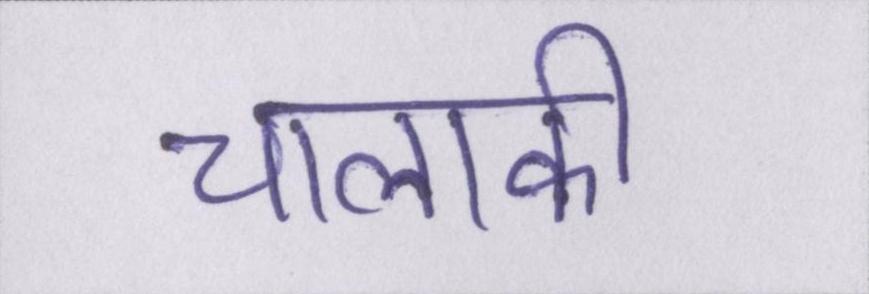 चालाकी